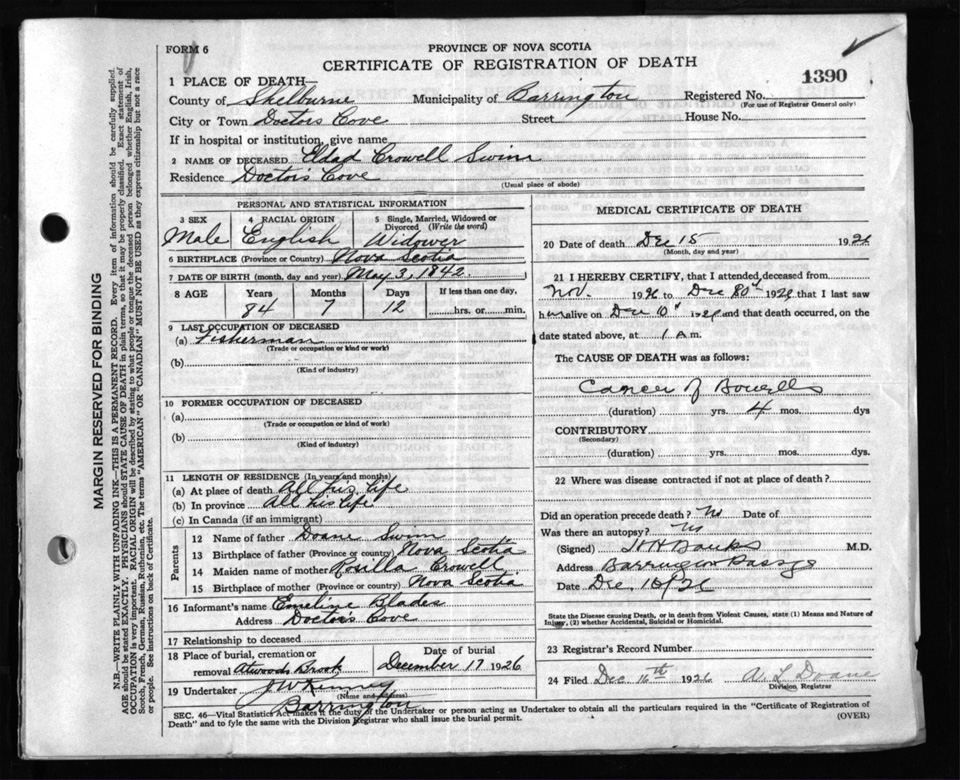 FORM 6
PROVINCE OF NOVA SCOTIA
CERTIFICATE OF REGISTRATION OF DEATH
1390
1 PLACE OF DEATH—
County of Shelburne Municipality of Barrington Registered No.
(For use of Registrar General only)
City or Town Doctors Cove Street House No.
If in hospital or institution, give name
2 NAME OF DECEASED Eldad Crowell Swim
Residence Doctors Cove
(Usual place of abode)
PERSONAL AND STATISTICAL INFORMATION
3 SEX 4 RACIAL ORIGIN 5 Single, Married, Widowed or Divorced (Write the word)
Male English Widower
6 BIRTHPLACE (Province or Country) Nova Scotia
7 DATE OF BIRTH (month, day and year) May 3, 1842
8 AGE Years Months Days If less than one day,
84 7 12 hrs. or min.
9 LAST OCCUPATION OF DECEASED
(a) Fisherman
(Trade or occupation or kind or work)
(b)
(Kind of industry)
10 FORMER OCCUPATION OF DECEASED
(a)
(Trade or occupation or kind or work)
(b)
(Kind of industry)
11 LENGTH OF RESIDENCE (In years and months)
(a) At place of death All his life
(b) In province All his life
(c) In Canada (if an immigrant)
Parents
12 Name of father Doane Swim
13 Birthplace of father (Province or country) Nova Scotia
14 Maiden name of mother Rosilla Crowell
15 Birthplace of mother (Province or country) Nova Scotia
16 Informant's name Emeline Blades
Address Doctors Cove
17 Relationship to deceased
18 Place of burial, cremation or removal Atwoods Brook
Date of burial
December 17 1926
19 Undertaker J W Kenney
(Name and address)
Barrington
MEDICAL CERTIFICATE OF DEATH
20 Date of death Dec 15 1926
(Month, day and year)
21 I HEREBY CERTIFY, that I attended deceased from
Nov. 1926 to Dec 192 that I last saw
him alive on Dec 10 and that death occurred, on the
date stated above, at 1 A m.
The CAUSE OF DEATH was as follows:
Cancer of Bowells
(duration) yrs. 4 mos. dys
CONTRIBUTORY
(Secondary)
(duration) yrs. mos. dys.
22 Where was disease contracted if not at place of death?
Did an operation precede death? No Date of
Was there an autopsy? No
(Signed) H H Banks M.D.
Address Barrington Passge
Date Dec, 26
State the Disease causing Death, or in Death from Violent Causes, state (1) Means and Nature of
Injury, (2) whether Accidental, Suicidal or Homicidal.
23 Registrar's Record Number
24 Filed Dec 16th 1926 A. L Doane
Division Registrar
SEC. 46—Vital Statistics Act makes it the duty of the Undertaker or person acting as Undertaker to obtain all the particulars required in the "Certificate of Registration of
Death" and to fyle the same with the Division Registrar who shall issue the burial permit. (OVER)
MARGIN RESERVED FOR BINDING
N.B.—WRITE PLAINLY WITH UNFADING INK—THIS IS A PERMANENT RECORD. Every item of information should be carefully supplied.
AGE should be stated EXACTLY. PHYSICIANS should STATE CAUSE OF DEATH in plain terms, so that it may be properly classified. Exact statement of
OCCUPATION is very important. RACIAL ORIGIN will be described by stating to what people or tongue the deceased person belonged whether English, Irish,
Scotch, French, German, Russian, Ruthenian, etc. The terms "AMERICAN" OR "CANADIAN" MUST NOT BE USED as they express citizenship but not a race
or people. See instructions on back of Certificate.